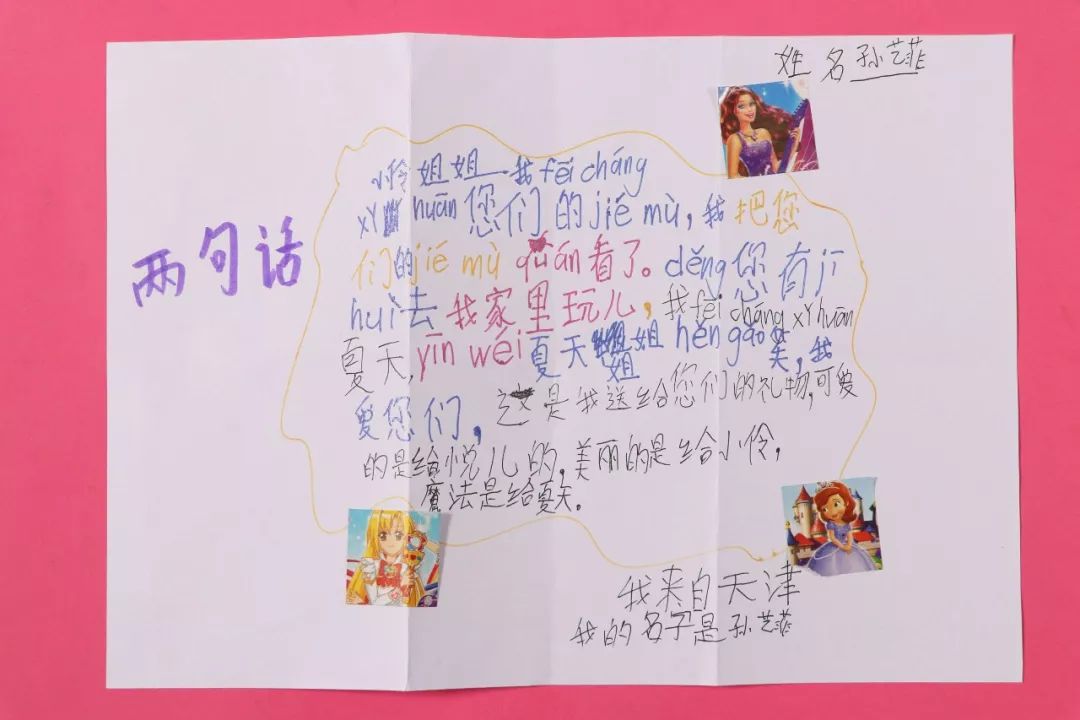 姓名孙艺菲
两句话
小伶姐姐 我fēi cháng
xY huān您们的jié mù,我把您
们的jié mù quán看了。děng您有jī
huì去我家里玩儿,我fēi cháng xY huān
夏天,yīn wéi夏天姐姐hěn gāo 美,我
爱您们,这是我送给您们的礼物,可爱
的是给悦儿的,美丽的是给小伶,
魔法是给夏天。
我来自天津
我的名字是孙艺菲